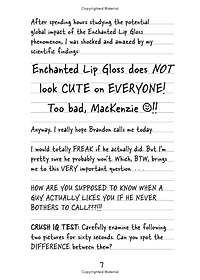 After spending hours studying the potential
global impact of the Enchanted Lip Gloss
phenomenon, I was shocked and amazed by my
scientific findings:
Enchanted Lip Gloss does NOT
look CUTE on EVERYONE!
Too bad, MacKenzie ☺!!
Anyway, I really hope Brandon calls me today.
I would totally FREAK if he actually did. But I'm
pretty sure he probably won't. Which, BTW, brings
me to this VERY important question . . . .
HOW ARE YOU SUPPOSED TO KNOW WHEN A
GUY ACTUALLY LIKES YOU IF HE NEVER
BOTHERS TO CALL???!!!
CRUSH IQ TEST: Carefully examine the following
two pictures for sixty seconds. Can you spot the
DIFFERENCE between them?
7